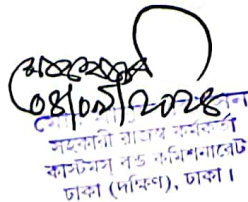 ০৪/০৯/২০২৪
সহকারী রাজস্ব কর্মকর্তা
কাস্টমস বন্ড কমিশনারেট
ঢাকা (দক্ষিণ), ঢাকা।